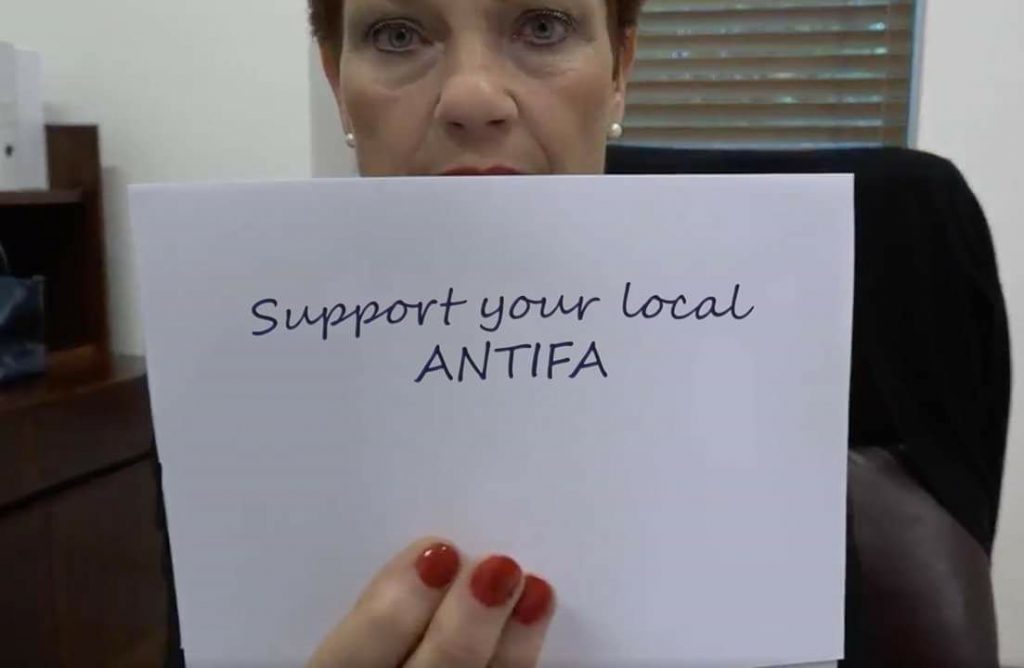 Support your local
ANTIFA